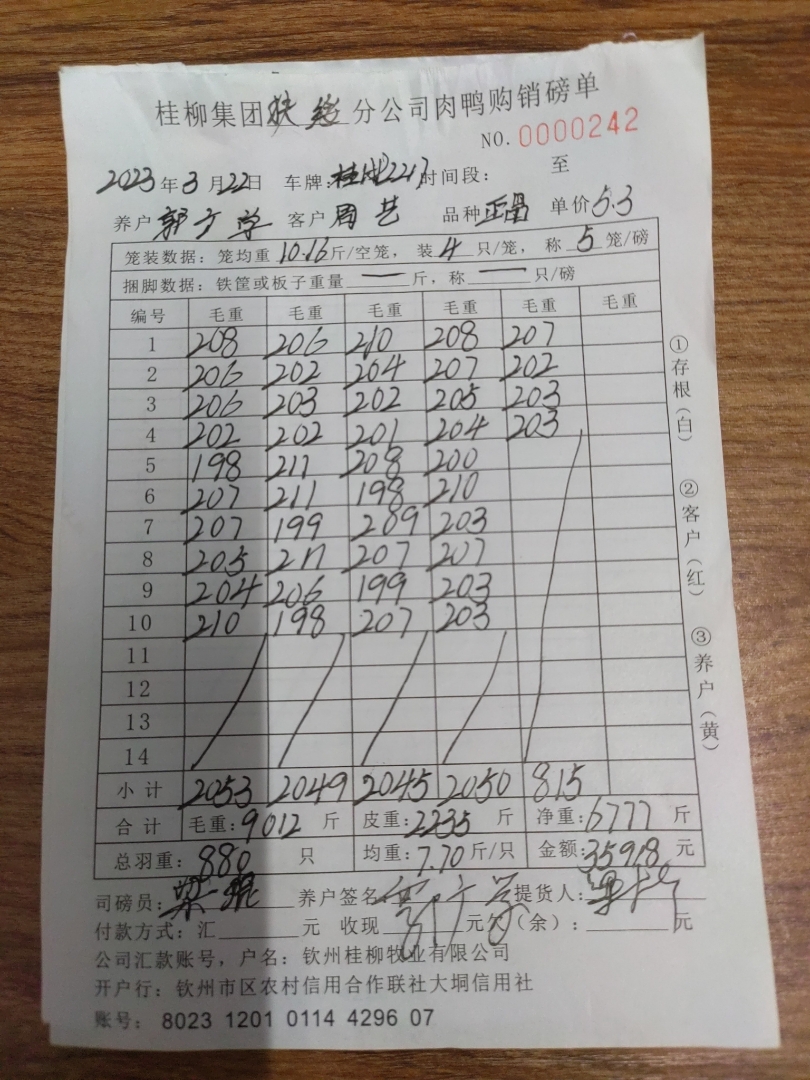 桂柳集团扶绥分公司肉鸭购销磅单
NO. 0000242
2023年3月22日 车牌: 时间段: 至
养户 郭 学 客户 周艺 品种 正番 单价 5.3
笼装数据: 笼均重 10.16 斤/空笼, 装 4 只/笼, 称 5 笼/磅
捆脚数据: 铁筐或板子重量 — 斤, 称 — 只/磅
编号 毛重 毛重 毛重 毛重 毛重 毛重
1 208 206 210 208 207
2 206 202 204 207 202
3 206 203 202 205 203
4 202 202 201 204 203
5 198 211 208 200
6 207 211 198 210
7 207 199 209 203
8 205 211 207 207
9 204 206 199 203
10 210 198 207 203
11
12
13
14
小计 2053 2049 2045 2050 815
合计 毛重: 9012 斤 皮重: 2235 斤 净重: 6777 斤
总羽重: 880 只 均重: 7.70 斤/只 金额: 35918 元
司磅员: 养户签名 提货人:
付款方式: 汇 元 收现 元欠(余): 元
公司汇款账号, 户名: 钦州桂柳牧业有限公司
开户行: 钦州市区农村信用合作联社大垌信用社
账号: 8023 1201 0114 4296 07
①存根(白)
②客户(红)
③养户(黄)